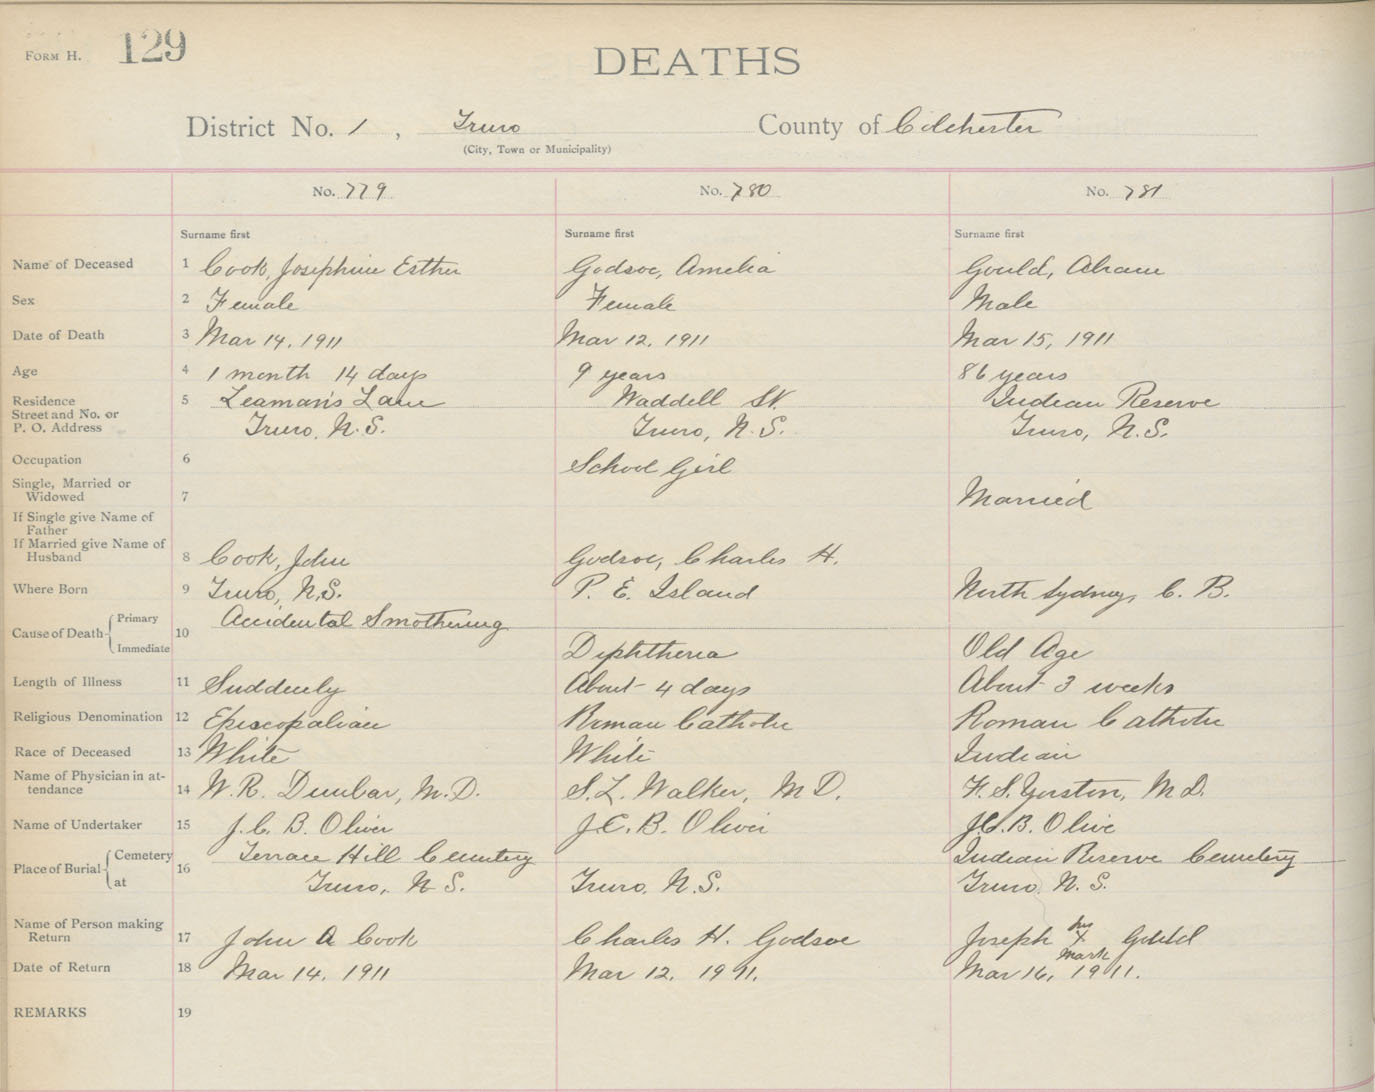 FORM H. 129
DEATHS
District No. 1, Truro County of Colchester
(City, Town or Municipality)
No. 779 No. 780 No. 781
Surname first Surname first Surname first
Name of Deceased 1 Cook, Josephine Esther Godsoe, Amelia Gould, Abram
Sex 2 Female Female Male
Date of Death 3 Mar 14, 1911 Mar 12, 1911 Mar 15, 1911
Age 4 1 month 14 days 9 years 86 years
Residence 5 Leaman's Lane Waddell St. Indian Reserve
Street and No. or
P. O. Address Truro, N.S. Truro, N.S. Truro, N.S.
Occupation 6 School Girl
Single, Married or
Widowed 7 Married
If Single give Name of
Father
If Married give Name of
Husband 8 Cook, John Godsoe, Charles H.
Where Born 9 Truro, N.S. P. E. Island North Sydney, C. B.
Cause of Death Primary 10 Accidental Smothering
Immediate Diphtheria Old Age
Length of Illness 11 Suddenly About 4 days About 3 weeks
Religious Denomination 12 Episcopalian Roman Catholic Roman Catholic
Race of Deceased 13 White White Indian
Name of Physician in at-
tendance 14 W. R. Dunbar, M.D. S. L. Walker, M D. F. S. Yorston, M D.
Name of Undertaker 15 J. C. B. Oliver J C. B. Oliver J C. B. Olive
Place of Burial Cemetery 16 Terrace Hill Cemetery Indian Reserve Cemetery
at Truro, N S. Truro, N.S. Truro, N. S.
Name of Person making
Return 17 John A Cook Charles H. Godsoe Joseph his X mark Gould
Date of Return 18 Mar 14, 1911 Mar 12, 1911. Mar 16, 1911.
REMARKS 19